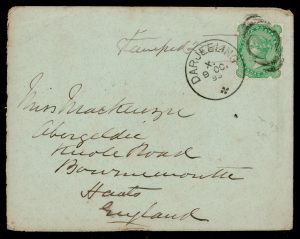 DARJEELING
OC.
Miss Mackenzie
Abergeldie
Knole Road
Bournemouth
Hants
England